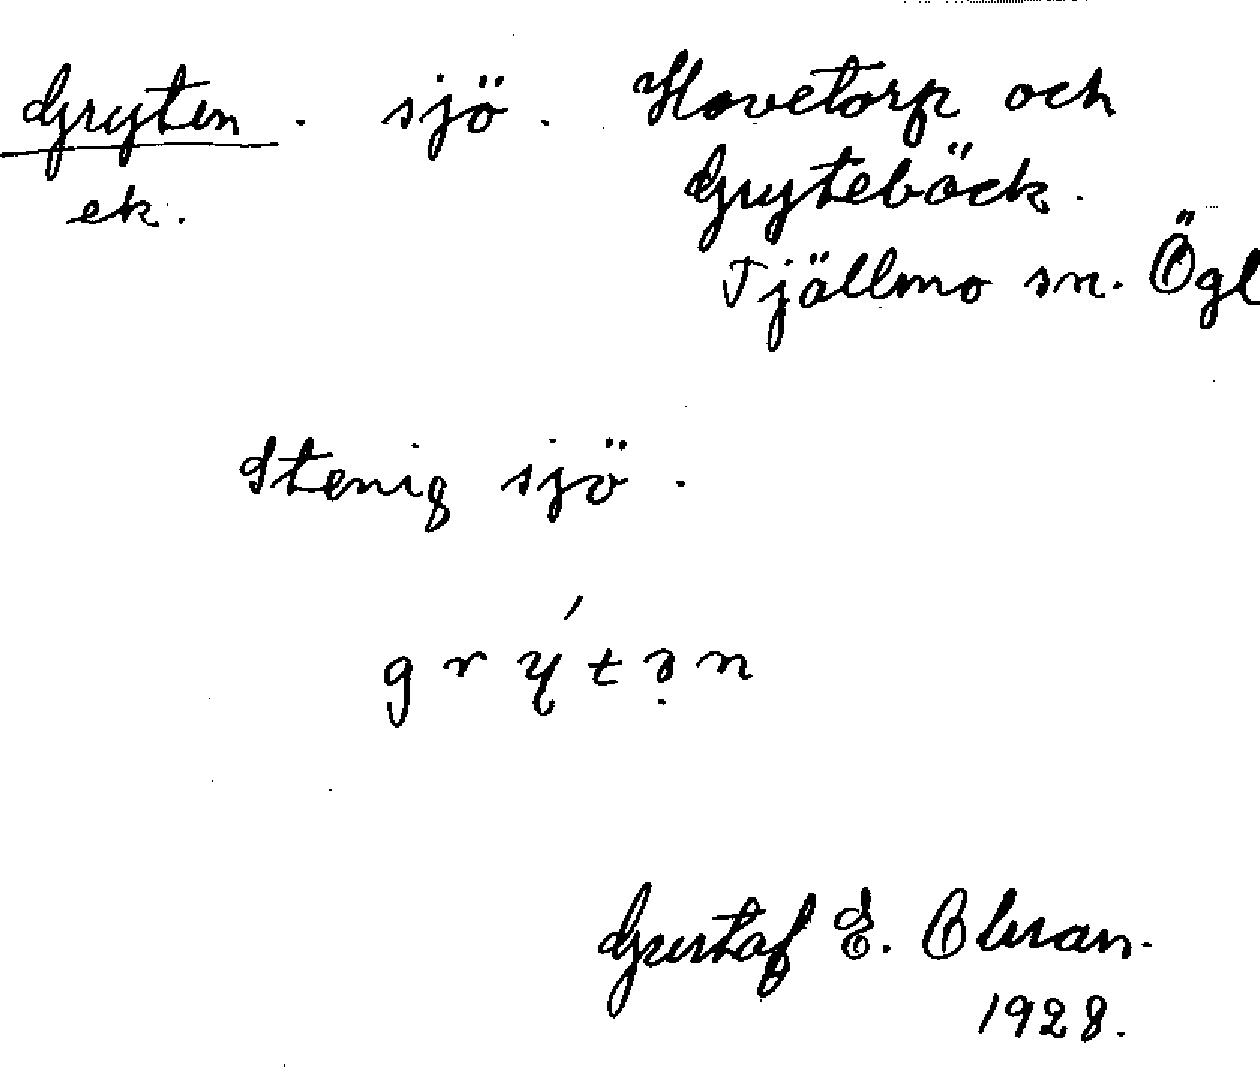 Gryten. sjö. Hovetorp och
ek. Gryteböck.
Tjällmo sn. Ögl
Stenig sjö.
grýtən
Gustaf E. Olman.
1928.